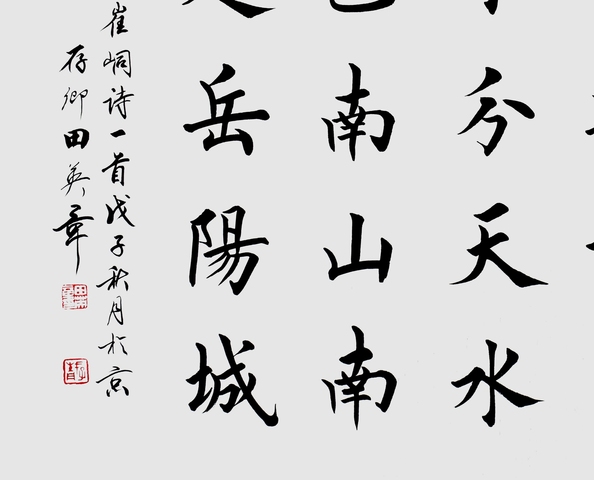 分天水
南山南
岳陽城
崔峒诗一首戊子秋月於京
存卿田英章